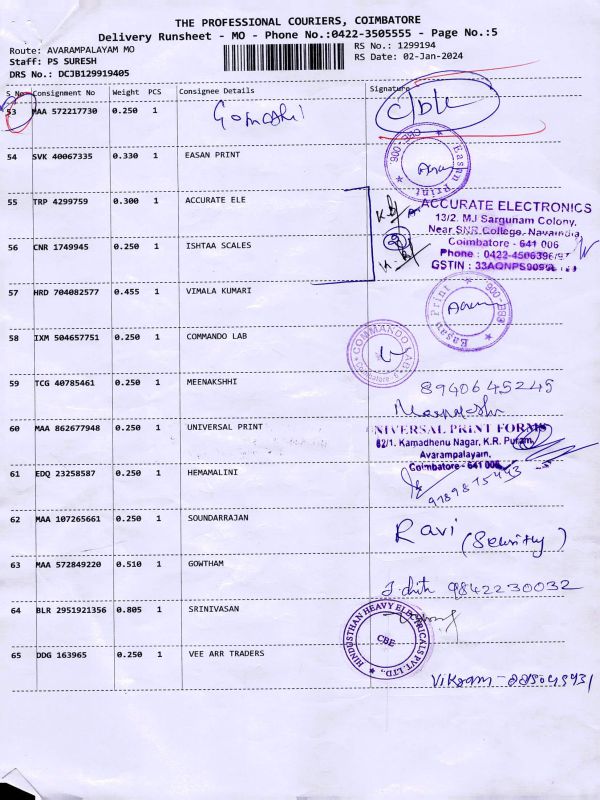 THE PROFESSIONAL COURIERS, COIMBATORE
Delivery Runsheet - MO - Phone No.:0422-3505555 - Page No.:5
Route: AVARAMPALAYAM MO
RS No.: 1299194
Staff: PS SURESH
RS Date: 02-Jan-2024
DRS No.: DCJB129919405
S No Consignment No Weight PCS Consignee Details Signature
53 MAA 572217730 0.250 1
54 SVK 40067335 0.330 1 EASAN PRINT
Easan Print
55 TRP 4299759 0.300 1 ACCURATE ELE
ACCURATE ELECTRONICS
13/2. MJ Sargunam Colony,
Near SNR College, Navaindia
Coimbatore - 641 006
Phone : 0422-4506396/97
GSTIN :
56 CNR 1749945 0.250 1 ISHTAA SCALES
57 HRD 704082577 0.455 1 VIMALA KUMARI
Easan Print
58 IXM 504657751 0.250 1 COMMANDO LAB
COMMANDO LAB
Coimbatore
59 TCG 40785461 0.250 1 MEENAKSHHI
8940645245
60 MAA 862677948 0.250 1 UNIVERSAL PRINT
UNIVERSAL PRINT FORMS
82/1. Kamadhenu Nagar, K.R. Puram,
Avarampalayam,
Coimbatore - 641 006
61 EDQ 23258587 0.250 1 HEMAMALINI
9789875443
62 MAA 107265661 0.250 1 SOUNDARRAJAN
Ravi (Security)
63 MAA 572849220 0.510 1 GOWTHAM
9842230032
64 BLR 2951921356 0.805 1 SRINIVASAN
HINDUSTHAN HEAVY ELECTRICALS PVT. LTD.,
CBE
65 DDG 163965 0.250 1 VEE ARR TRADERS
Vikram